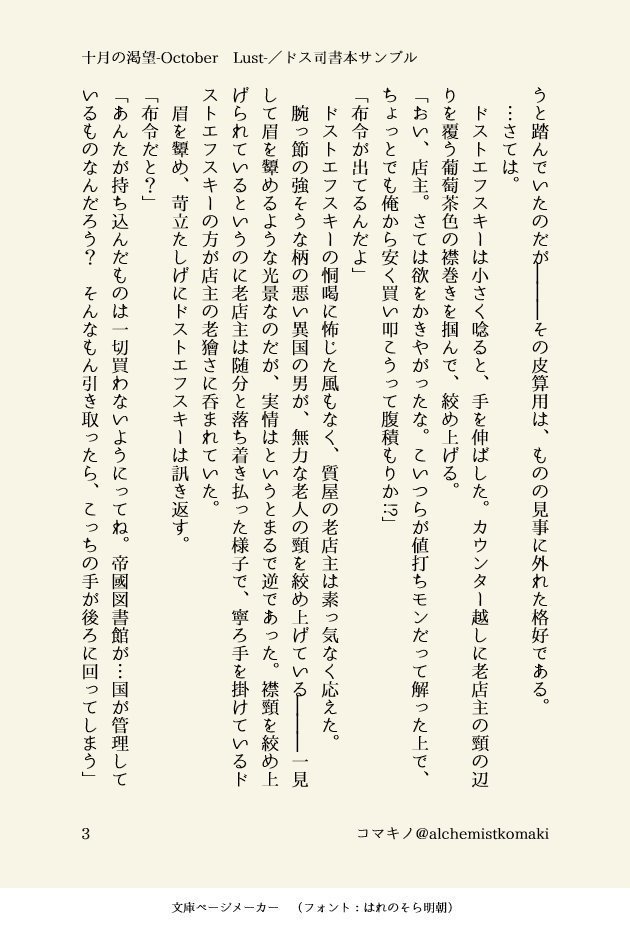 十月の渇望-October　Lust-／ドス司書本サンプル
うと踏んでいたのだが――その皮算用は、ものの見事に外れた格好である。
　…さては。
　ドストエフスキーは小さく唸ると、手を伸ばした。カウンター越しに老店主の頸の辺
りを覆う葡萄茶色の襟巻きを掴んで、絞め上げる。
「おい、店主。さては欲をかきやがったな。こいつらが値打ちモンだって解った上で、
ちょっとでも俺から安く買い叩こうって腹積もりか!?」
「布令が出てるんだよ」
　ドストエフスキーの恫喝に怖じた風もなく、質屋の老店主は素っ気なく応えた。
　腕っ節の強そうな柄の悪い異国の男が、無力な老人の頸を絞め上げている――一見
して眉を顰めるような光景なのだが、実情はというとまるで逆であった。襟頸を絞め上
げられているというのに老店主は随分と落ち着き払った様子で、寧ろ手を掛けているド
ストエフスキーの方が店主の老獪さに呑まれていた。
　眉を顰め、苛立たしげにドストエフスキーは訊き返す。
「布令だと？」
「あんたが持ち込んだものは一切買わないようにってね。帝國図書館が…国が管理して
いるものなんだろう？　そんなもん引き取ったら、こっちの手が後ろに回ってしまう」
3
コマキノ@alchemistkomaki
文庫ページメーカー　（フォント：はれのそら明朝）